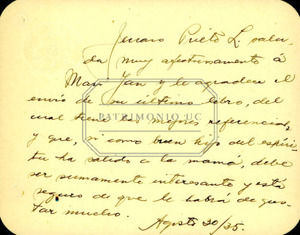 Jenaro Prieto L. salu-
da muy afectuosamente á
Mari Yan y le agradece el
envío de su último libro, del
cual tiene las mejores referencias,
PATRIMONIO UC
y que, si como buen hijo del espíri-
tu ha salido a la mamá, debe
ser sumamente interesante y está
seguro de que le habrá de gus-
tar mucho.
Agosto 20/35.